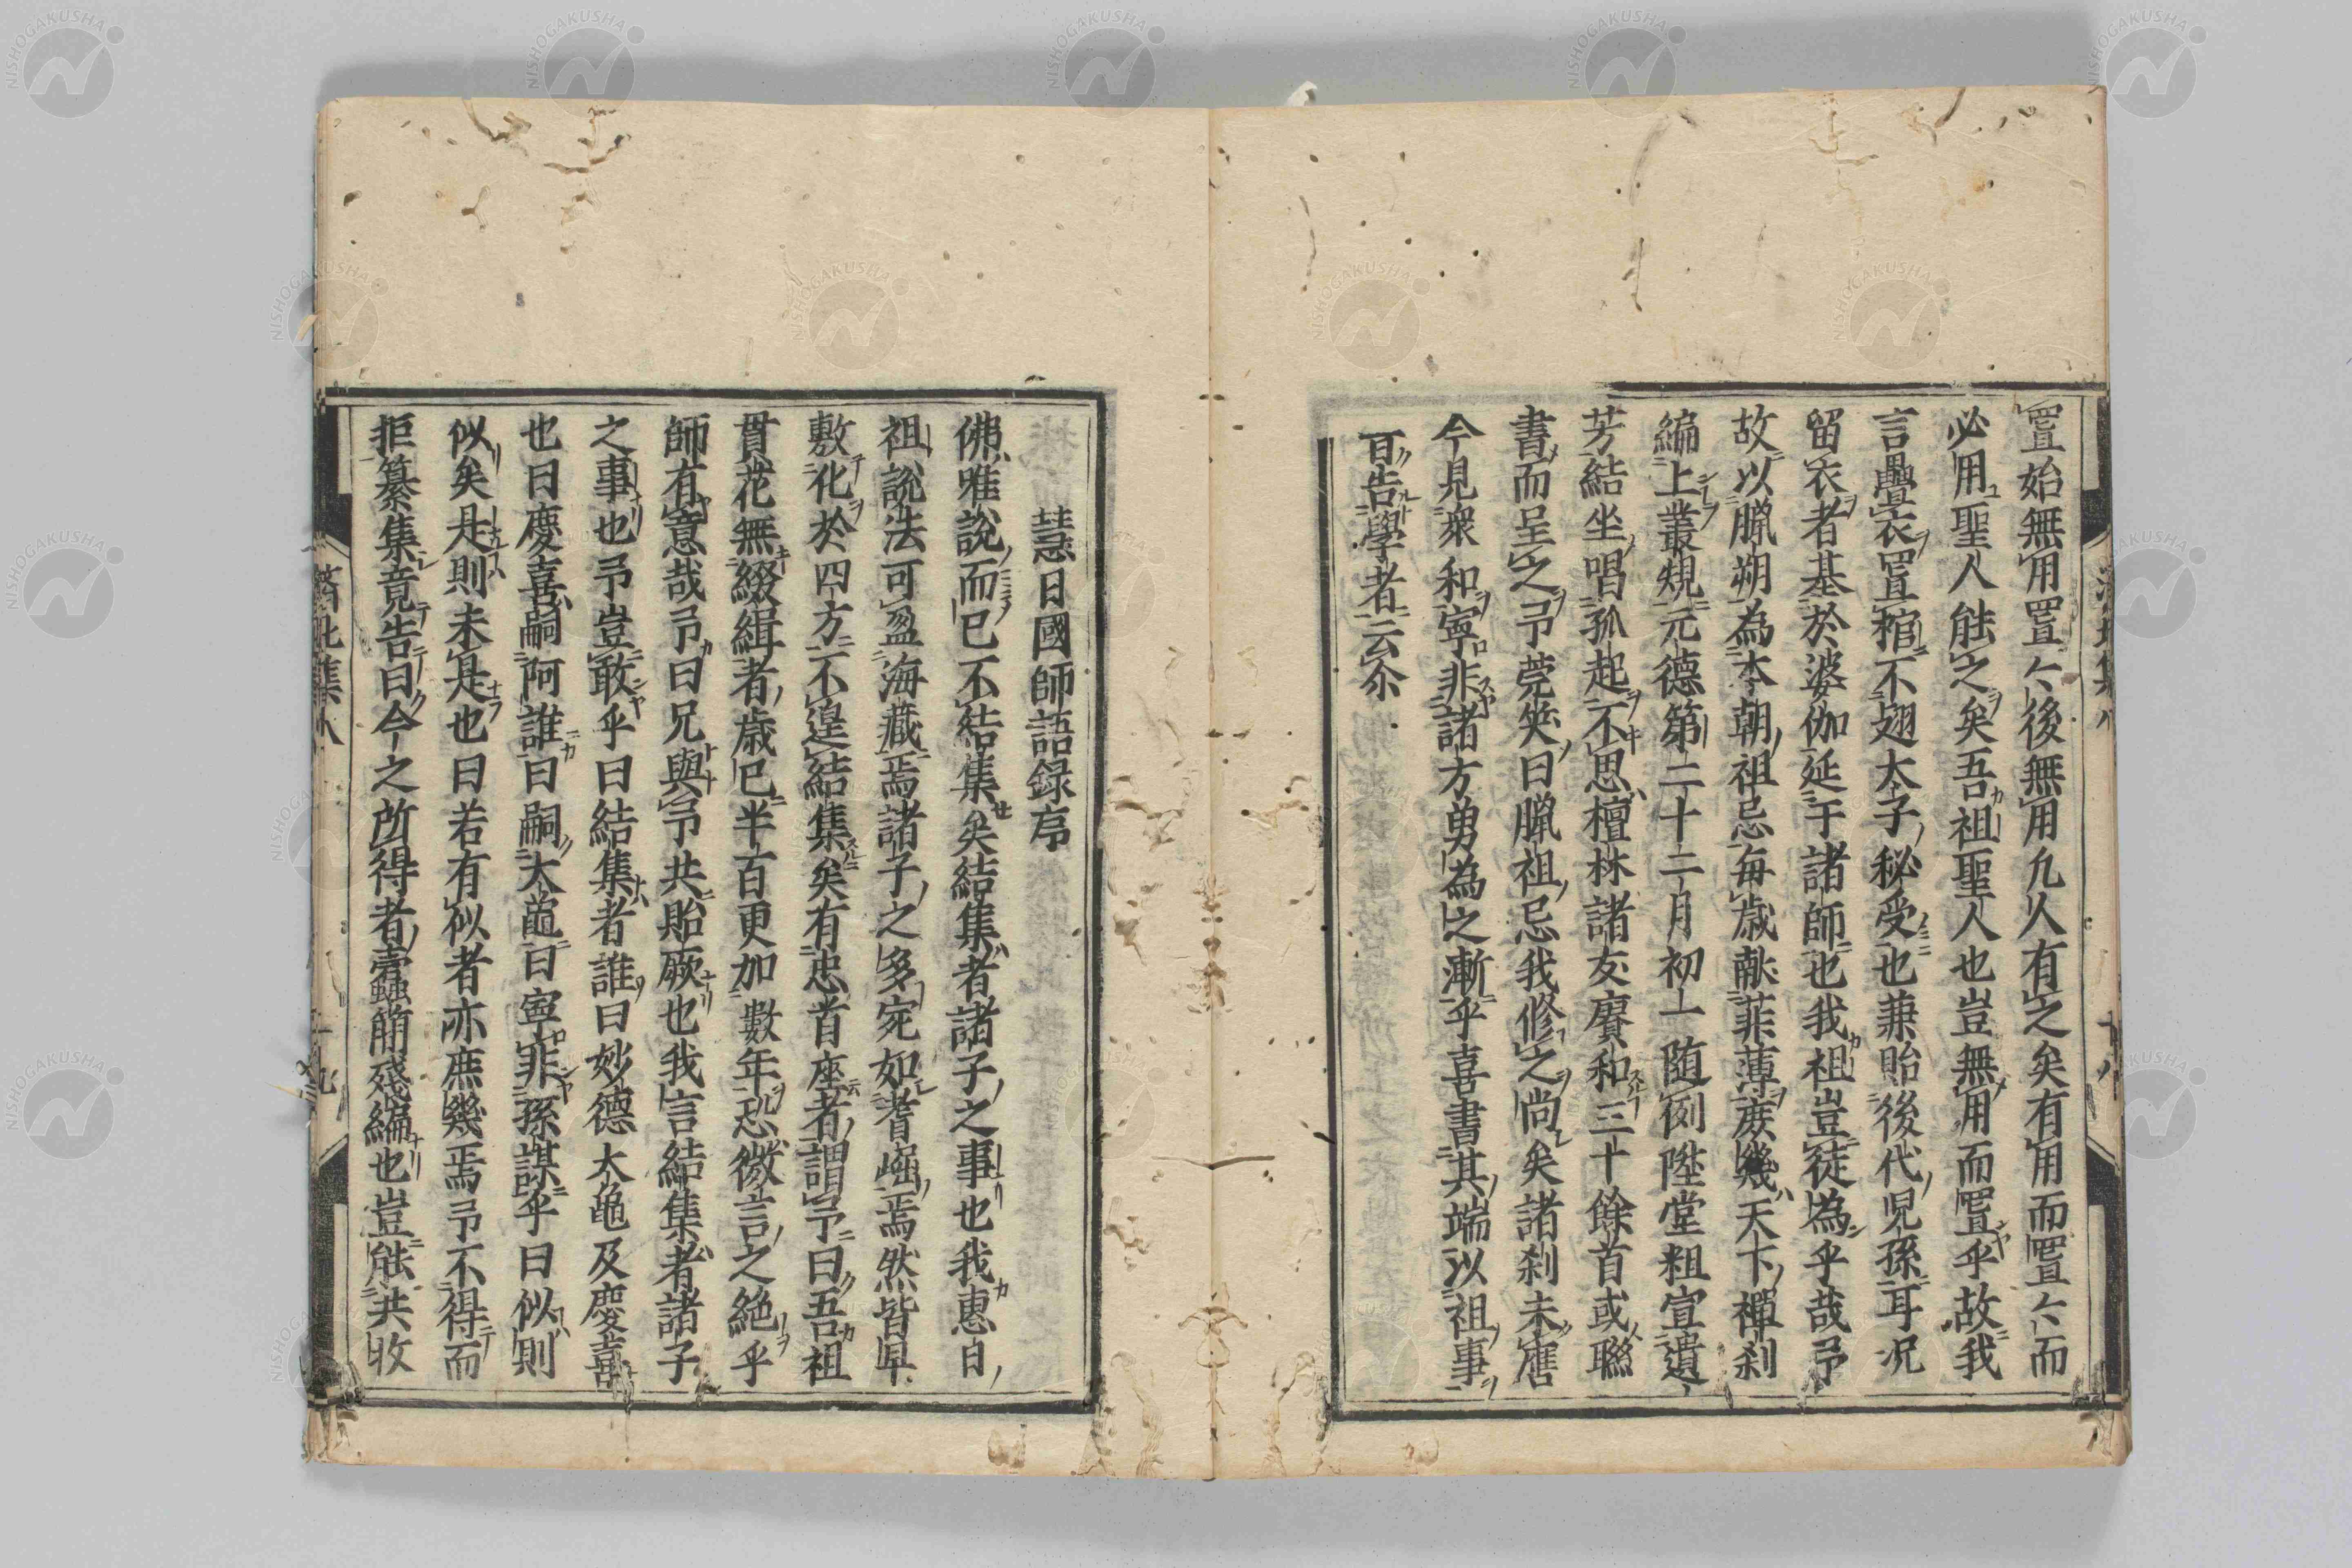 置始無用置々後無用九人有之矣有用而置々而
必用聖人能之矣吾祖聖人也豈無用而置乎故我
言疊衣置棺不翅太子秘受也兼貽後代兒孫耳况
留衣者基於婆伽延于諸師也我祖豈徒為乎哉予
故以臘朔為本朝祖忌每歲献菲薄蔟幾天下禪刹
編上叢規元德第二十二月初一随例陞堂粗宣遺
芳結坐唱孤起不思檀林諸友賡和三十餘首或聮
書而呈之予莞笑曰臘祖忌我修之尚矣諸刹未磨
今見衆和寧非諸方勇為之漸乎喜書其端以祖事
百告學者云尒
慧日國師語録序
佛唯說而已不結集矣結集者諸子之事也我惠日
祖說法可盈海藏焉諸子之多宛如耆崛焉然皆早
敷化於四方不遑結集矣有忠首座者謂予曰吾祖
貫花無綴緝者歲已半百更加數年恐微言之絶乎
師有意哉予曰兄與予共貽厥也我言結集者諸子
之事也予豈敢乎曰結集者誰曰妙德大龜及慶喜
也曰慶喜嗣阿誰曰嗣大龜曰寧非孫謀乎曰似則
似矣是則未是也曰若有似者亦庶幾焉予不得而
拒纂集竟告曰今之所得者蠹簡殘編也豈能共收
濟北集八
十九
十八
NISHOGAKUSHA